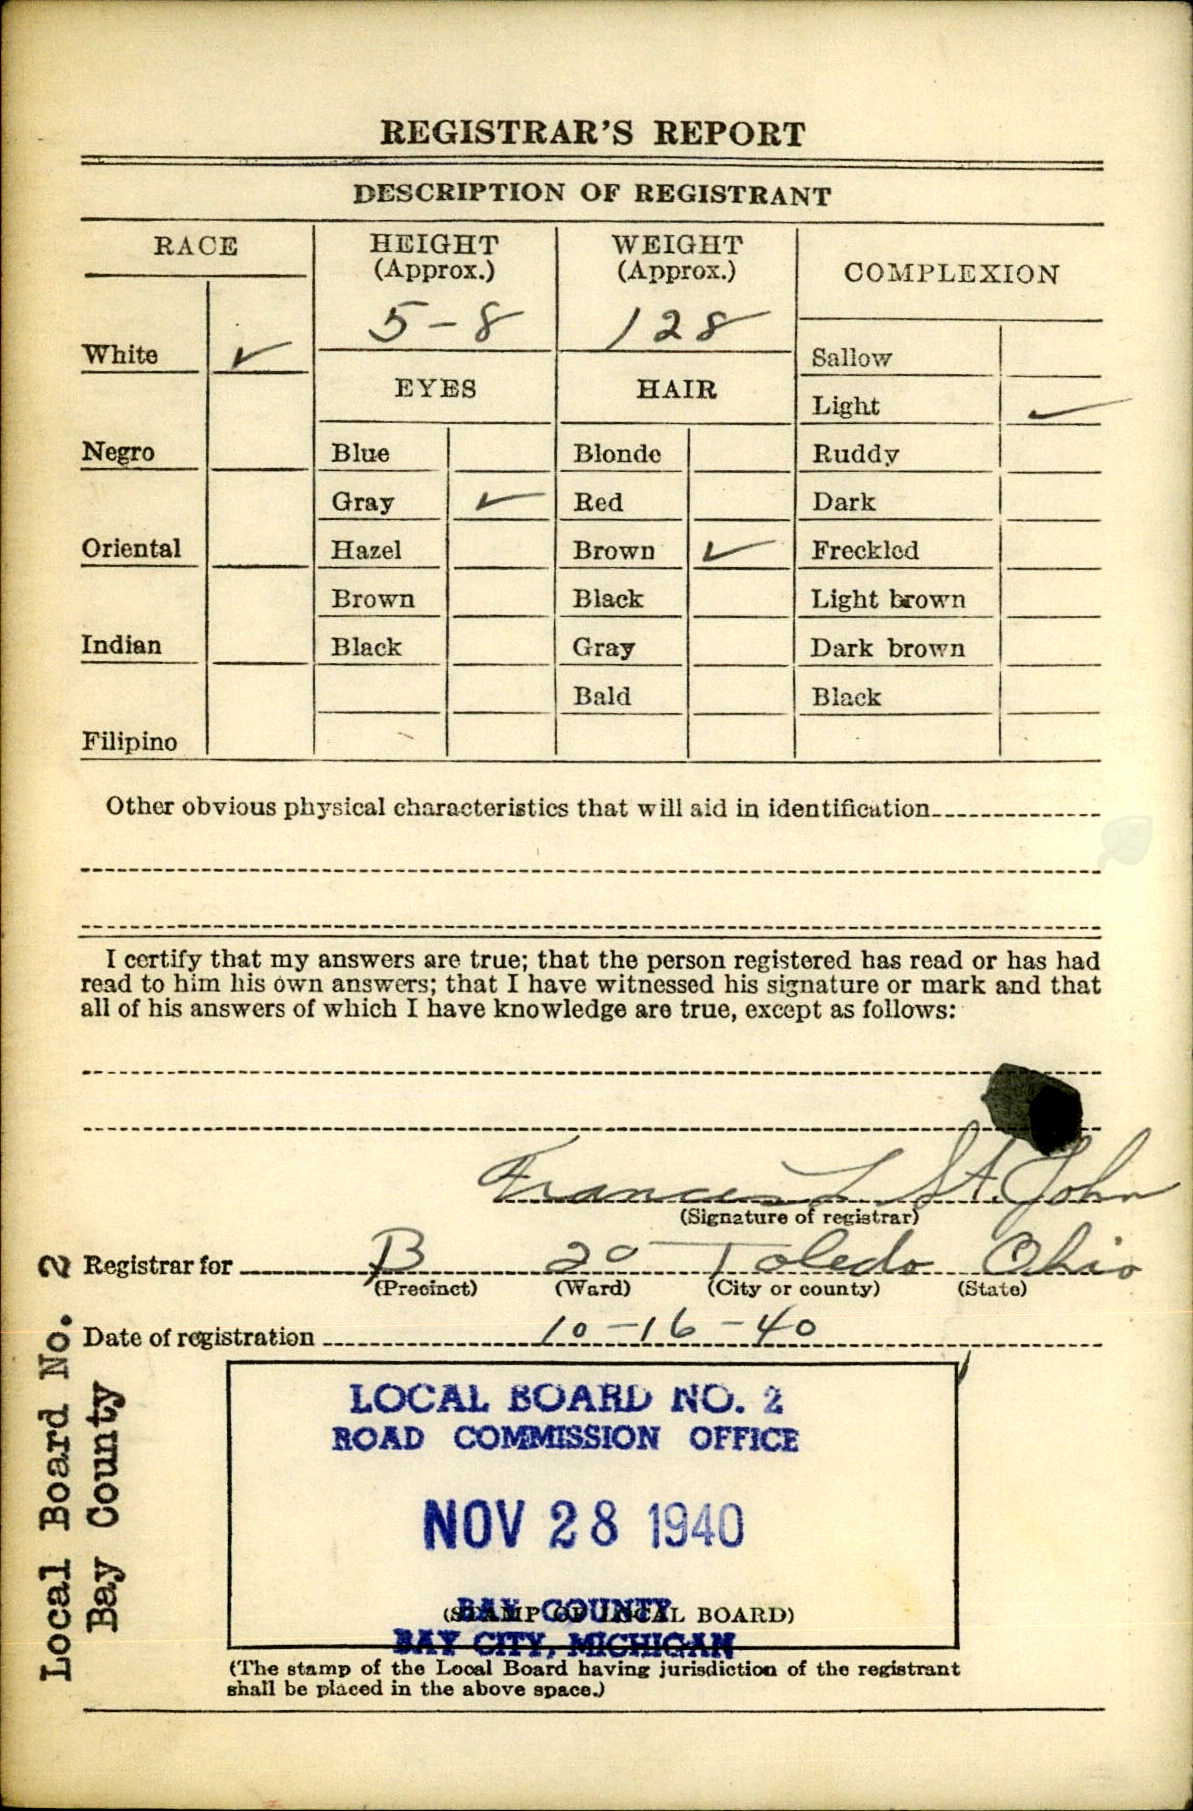 REGISTRAR'S REPORT
DESCRIPTION OF REGISTRANT
RACE
HEIGHT
(Approx.)
WEIGHT
(Approx.)
COMPLEXION
5-8
128
White ✓
Sallow
EYES
HAIR
Light ✓
Negro
Blue
Blonde
Ruddy
Gray ✓
Red
Dark
Oriental
Hazel
Brown ✓
Freckled
Brown
Black
Light brown
Indian
Black
Gray
Dark brown
Bald
Black
Filipino
Other obvious physical characteristics that will aid in identification
I certify that my answers are true; that the person registered has read or has had
read to him his own answers; that I have witnessed his signature or mark and that
all of his answers of which I have knowledge are true, except as follows:
Frances L St. John
(Signature of registrar)
Registrar for B 20 Toledo Ohio
(Precinct) (Ward) (City or county) (State)
Date of registration 10-16-40
LOCAL BOARD NO. 2
ROAD COMMISSION OFFICE
NOV 28 1940
BAY COUNTY
(STAMP OF LOCAL BOARD)
BAY CITY, MICHIGAN
(The stamp of the Local Board having jurisdiction of the registrant
shall be placed in the above space.)
Local Board No. 2
Bay County